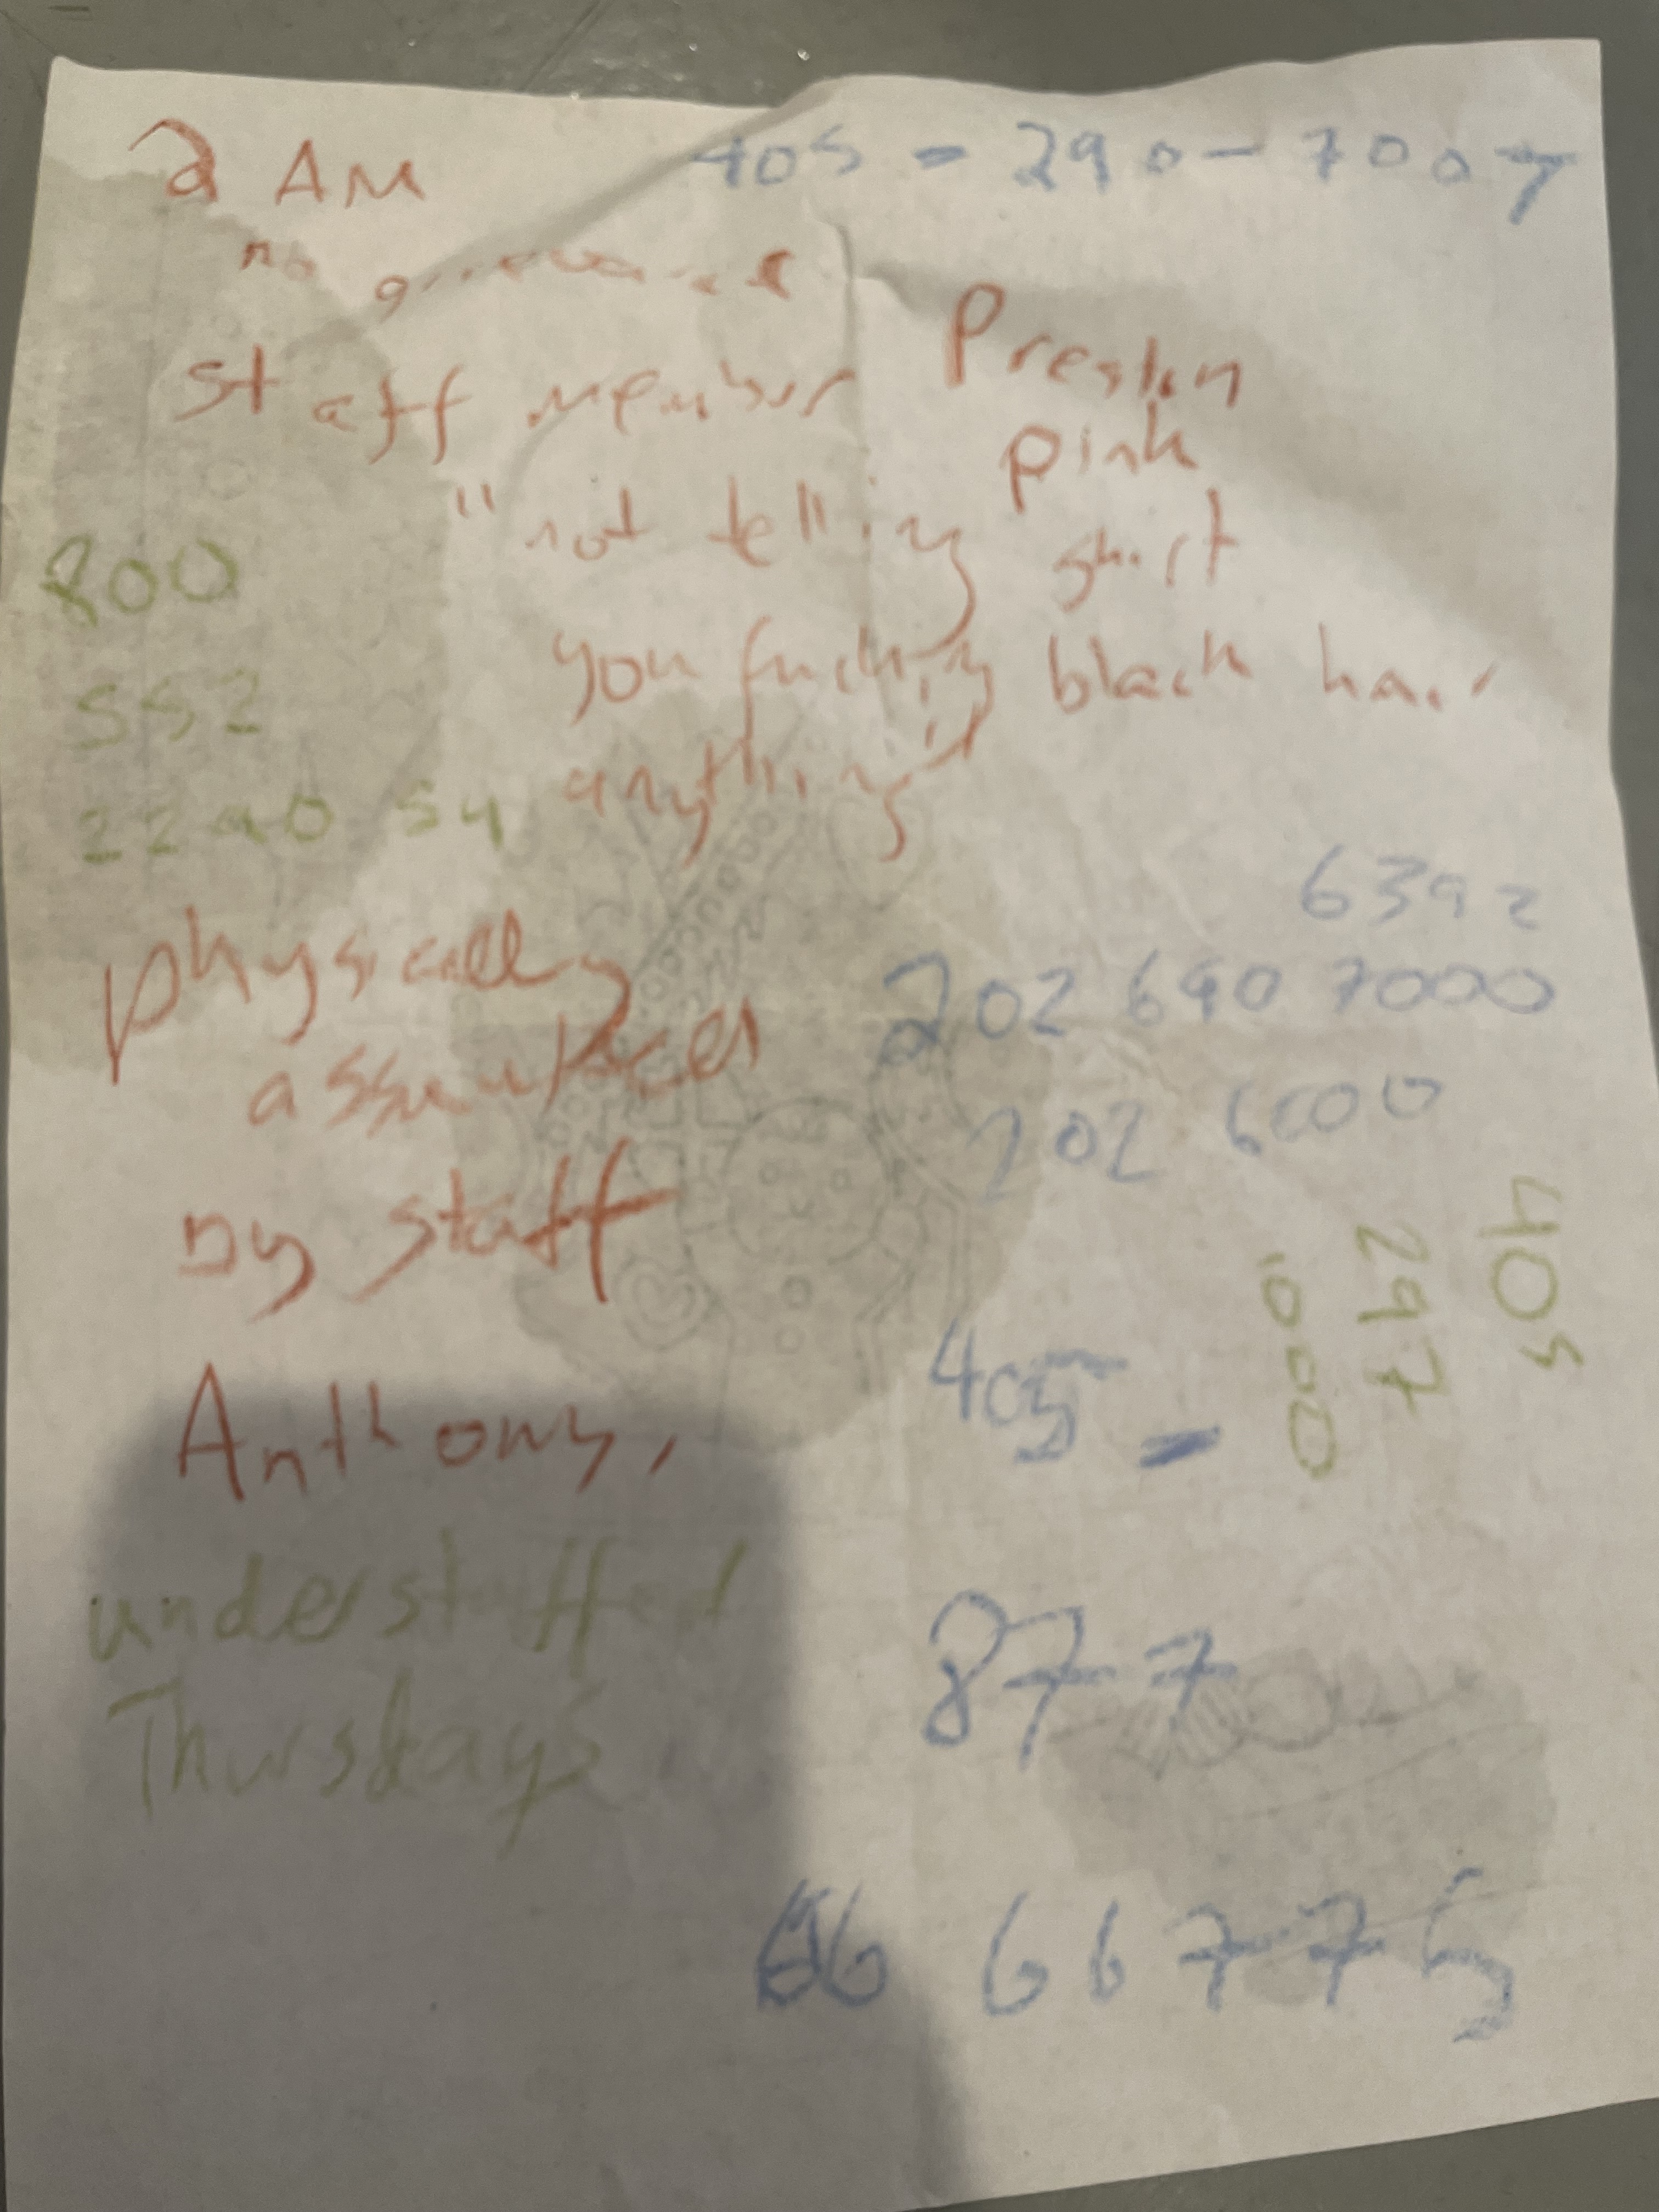 2 AM
405 - 290 - 7007
no grievance
staff member
Preston
pink
shirt
black hair
"not telling
you fucking
anything"
800
552
2290 54
6392
physically
assaulted
by staff
Anthony,
202 690 7000
202 6000
405
297
1000
405 -
understaffed
Thursdays
877
66 66775